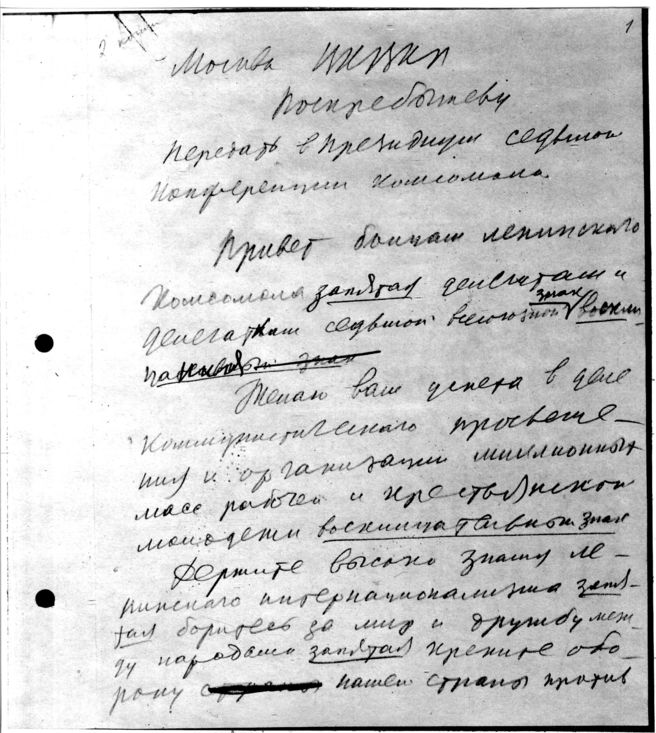 1
Москва ЦКВКП
Поскребышеву
Передать в президиум седьмой
конференции комсомола
Привет бойцам ленинского
комсомола запятая делегатам и
знак
делегаткам седьмой всесоюзной воскли
знак
Желаю вам успеха в деле
коммунистического просвеще-
ния и организации миллионных
масс рабочей и крестьянской
молодежи восклицательный знак
Держите высоко знамя ле-
нинского интернационализма запя-
тая боритесь за мир и дружбу меж-
ду народами запятая крепите обо-
рону нашей страны против